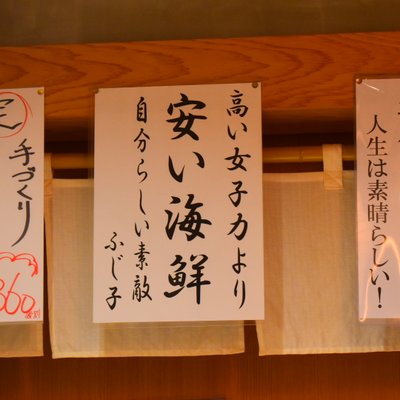 人生は素晴らしい!
高い女子力より
安い海鮮
自分らしい素敵
ふじ子
手づくり
360